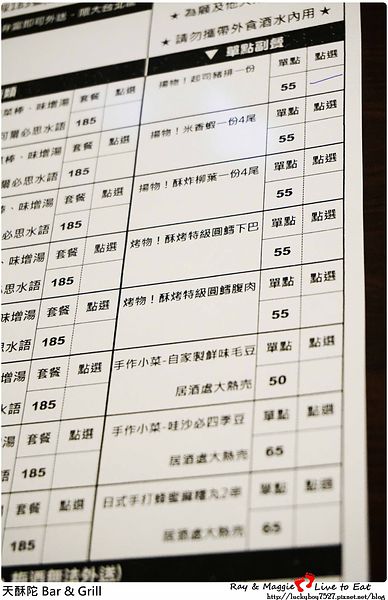 ★ 為顧及他人
有點即可外送，環大台北
★ 請勿攜帶外食酒水內用
▼ 單點副餐
揚物！起司豬排一份 單點 點選
55
菜棒、味增湯 套餐 點選
可爾必思水語 185
揚物！米香蝦一份4尾 單點 點選
55
棒、味增湯 套餐 點選
爾必思水語 185
揚物！酥炸柳葉一份4尾 單點 點選
55
棒、味增湯 套餐 點選
必思水語 185
烤物！酥烤特級圓鱈下巴 單點 點選
55
、味增湯 套餐 點選
必思水語 185
烤物！酥烤特級圓鱈腹肉 單點 點選
55
味增湯 套餐 點選
思水語 185
手作小菜-自家製鮮味毛豆 單點 點選
居酒處大熱売 50
味增湯 套餐 點選
水語 185
手作小菜-哇沙必四季豆 單點 點選
居酒處大熱売 65
增湯 套餐 點選
水語 185
日式手打蜂蜜麻糬丸2串 單點 點選
居酒處大熱売 65
湯 套餐 點選
語 185
無法外送）
天酥陀 Bar & Grill
Ray & Maggie Live to Eat
http://luckyboy7527.pixnet.net/blog